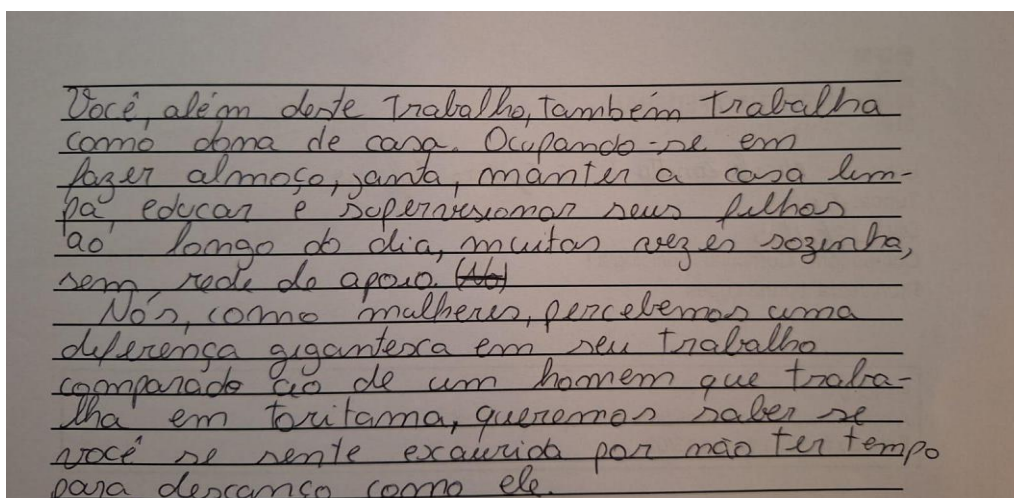 Você, além deste trabalho, também trabalha
como dona de casa. Ocupando-se em
fazer almoço, janta, manter a casa lim-
pa, educar e supervisionar seus filhos
ao longo do dia, muitas vezes sozinha,
sem rede de apoio. (No)
Nós, como mulheres, percebemos uma
diferença gigantesca em seu trabalho
comparado ao de um homem que traba-
lha em toritama, queremos saber se
você se sente exaurida por não ter tempo
para descanço como ele.